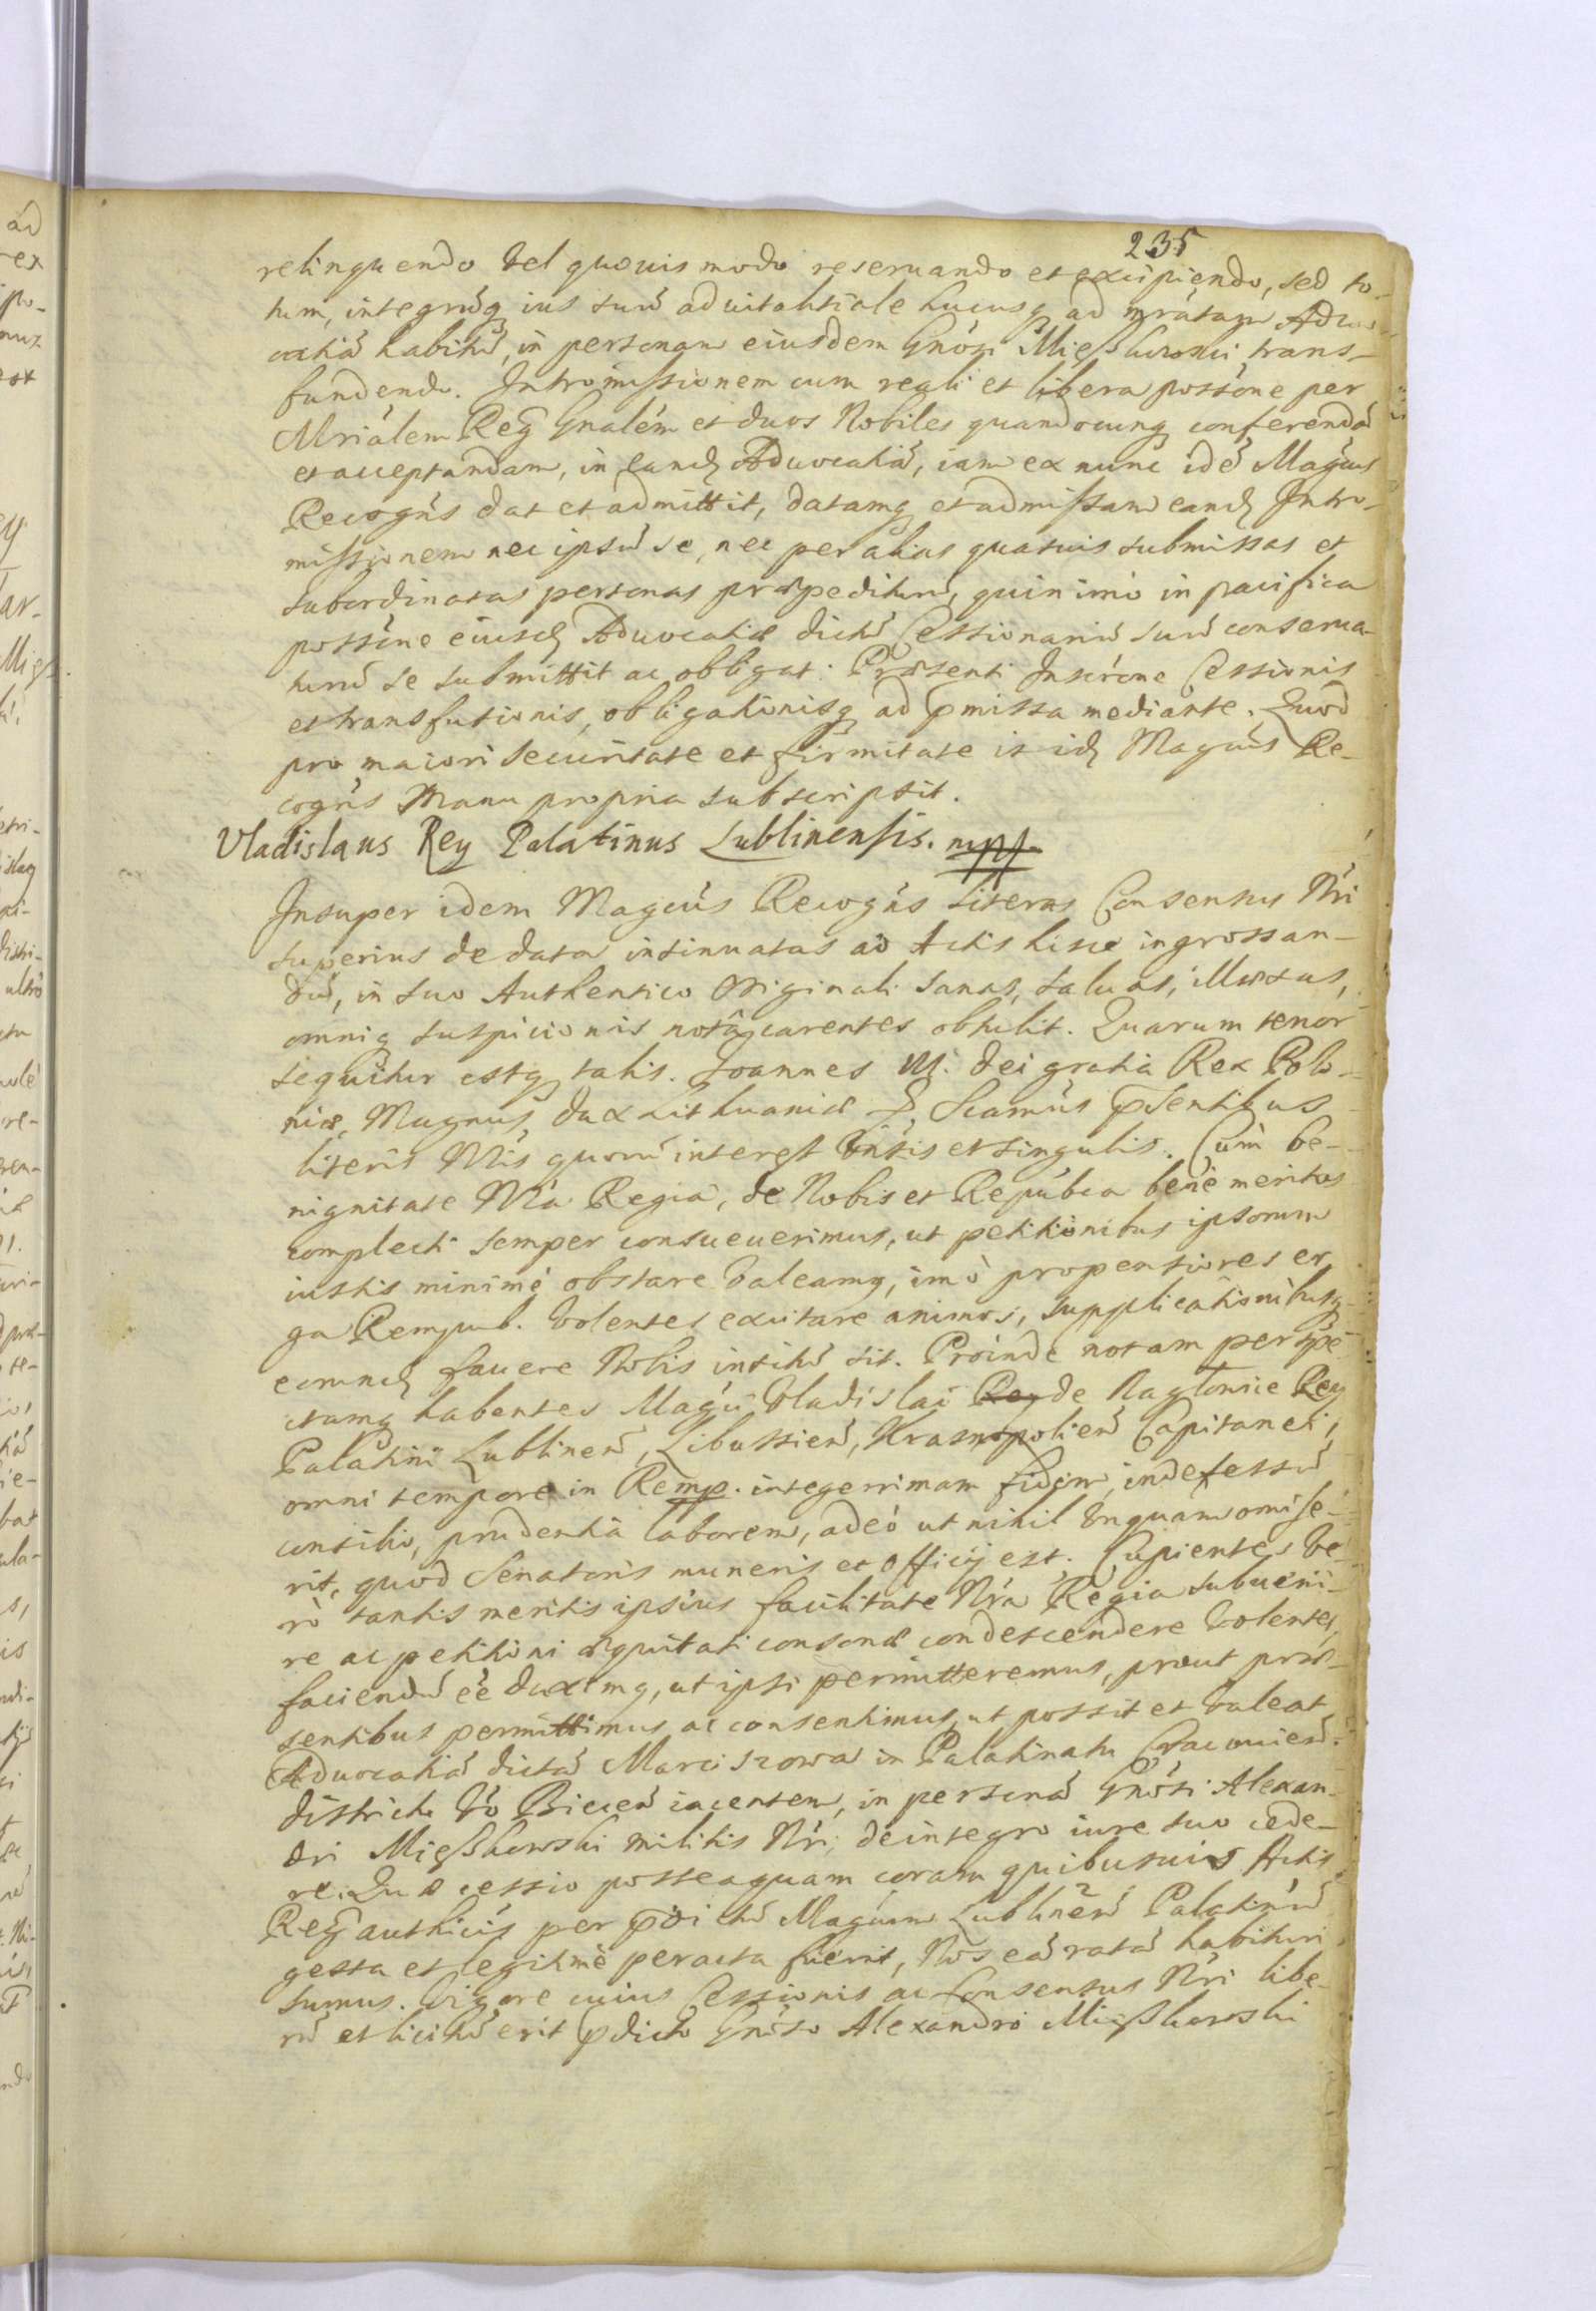 235
relinquendo vel quouis modo reseruando et excipiendo, sed to-
tum, integrũq ius suũ aduitalitiale hucusq ad mratam Aduo-
catiã habitũ, in personam eiusdem Gnosi Mięszkowski trans-
fundendo. Intromissionem cum reali et libera possone per
Mrialem Reg Gnalem et duos Nobiles quandocunq conferendã
et acceptandam, in eandꝫ Aduocatiã, iam ex nunc idẽ Magcus
Recogns dat et admittit, datamq et admissam eandꝫ Intro-
missionem nec ipsũ se, nec per alias quasuis submissas et
subordinatas personas præpediturũ, quinimo in pacifica
possone eiusdꝫ Aduocatiæ dictũ Cessionariũ suũ conserua-
turũ se submittit ac obligat. Præsenti Inscrone Cessionis
et transfusionis, obligationisq ad pmissa mediante. Quod
pro maiori securitate et firmitate is idꝫ Magcus Re-
cogns Manu propria subscripsit.
Vladislaus Rey Palatinus Lublinensis. mpp
Insuper idem Magcus Recogns Literas Consensus Nri
superius de data insinuatas ad Actis hisce ingrossan-
dũ, in suo Authentico Originali sanas, saluas, illæsas,
omniq suspicionis notâ carentes obtulit. Quarum tenor
sequitur estq talis. Joannes III. Dei gratia Rex Polo-
niæ, Magnus Dux Lithuaniæ &, Significamus psentibus
literis Nris quorũ interest vnisis et singulis. Cum be-
nignitate Nra Regia, de Nobis et Repubca bene meritos
complecti semper consueuerimus, ut petitionibus ipsorum
iustis minimè obstare valeamq, imò propensiores er
ga Rempub. volentes excitare animos, supplicationibusq
eorundꝫ fauere Nobis insitũ sit. Proinde notam perspe
ctamq habentes Magci Vladislai Rey de Naglowice Rey
Palatini Lublinen, Libussien, Krasnopolien Capitanei,
omni tempore in Remp. integerrimam fidem, indefessũ
consilio, prudentia laborem, adeò ut nihil vnquam omise-
rit, quod Senatoris muneris et officij est. Cupientes ve-
rò tantis meritis ipsius facilitate Nra Regia subueni-
re ac petitioni æquitati consonæ condescendere volentes,
faciendũ eẽ duximq, ut ipsi permitteremus, prout præ-
sentibus permittimus ac consentimus, ut possit et valeat
Aduocatiã dictã Marciszowa in Palatinatu Cracouien.
districtu vo Biecen iacentem, in personã Gnosi Alexan-
dri Mięszkowski militis Nri, de integro iure suo cede-
re. Quæ cessio posteaquam coram quibusuis Actis
Reg authcis per pdictũ Magcum Lublinen Palatinũ
gesta et legitimè peracta fuerit, Nos eã ratã habituri
sumus. Vigore cuius Cessionis ac Consensus Nri libe-
rũ et licitũ erit pdicto Gnoso Alexandro Mięszkowski